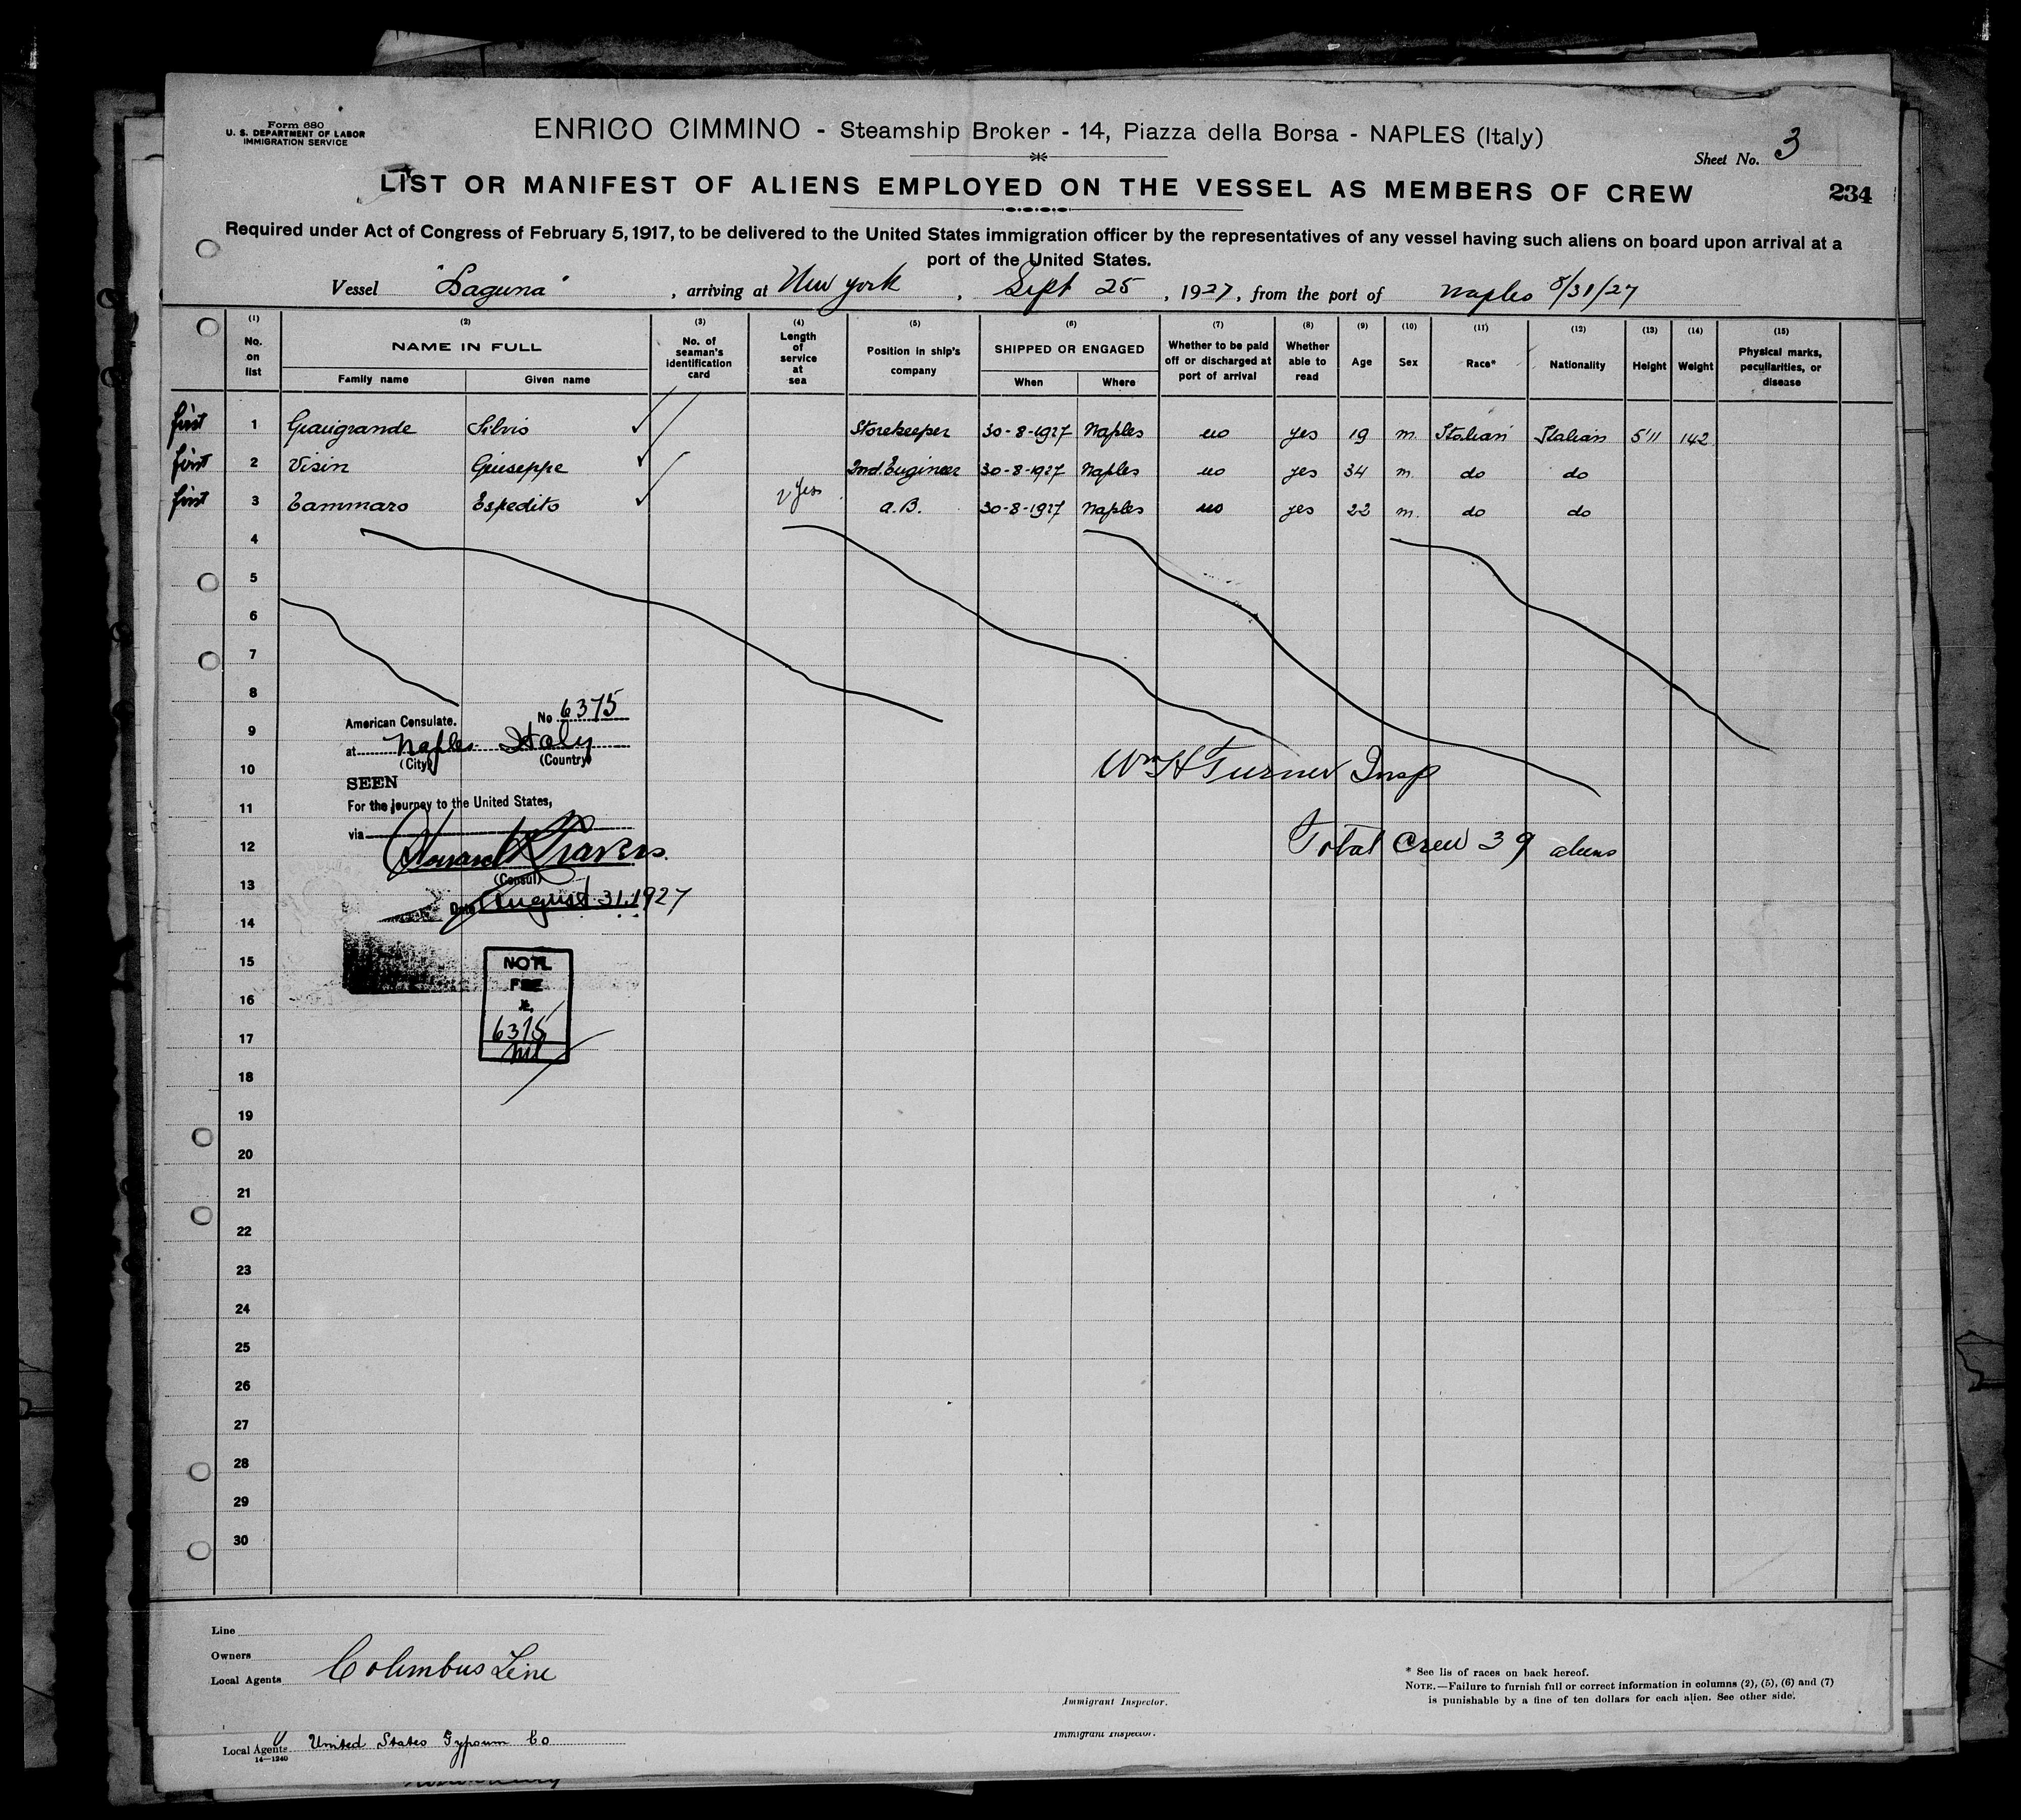 Form 680
U. S. DEPARTMENT OF LABOR
IMMIGRATION SERVICE
ENRICO CIMMINO - Steamship Broker - 14, Piazza della Borsa - NAPLES (Italy)
Sheet No. 3
LIST OR MANIFEST OF ALIENS EMPLOYED ON THE VESSEL AS MEMBERS OF CREW
234
Required under Act of Congress of February 5, 1917, to be delivered to the United States immigration officer by the representatives of any vessel having such aliens on board upon arrival at a
port of the United States.
Vessel "Laguna", arriving at New York, Sept 25, 1927, from the port of Naples 8/31/27
(1) No. on list (2) NAME IN FULL Family name Given name (3) No. of seaman's identification card (4) Length of service at sea (5) Position in ship's company (6) SHIPPED OR ENGAGED When Where (7) Whether to be paid off or discharged at port of arrival (8) Whether able to read (9) Age (10) Sex (11) Race* (12) Nationality (13) Height (14) Weight (15) Physical marks, peculiarities, or disease
first 1 Silvio Storekeeper 30-8-1927 Naples no yes 19 m. Italian Italian 5'11 142
first 2 Visin Giuseppe 2nd. Engineer 30-8-1927 Naples no yes 34 m. do do
first 3 Tammaro Espedito a.B. 30-8-1927 Naples no yes 22 m. do do
4
5
6
7
8
American Consulate. No 6375
9
at Naples Italy
(City) (Country)
10
Wm H Turner Insp
SEEN
For the journey to the United States,
11
via
12
Total Crew 39 aliens
(Consul)
13
Date August 31. 1927
14
15
FEE
16
6375
17
18
19
20
21
22
23
24
25
26
27
28
29
30
Line
Owners
Local Agents Columbus Line
Immigrant Inspector.
* See lis of races on back hereof.
NOTE.—Failure to furnish full or correct information in columns (2), (5), (6) and (7)
is punishable by a fine of ten dollars for each alien. See other side.
Local Agents United States Gypsum Co
14—1240
Immigrant Inspector.